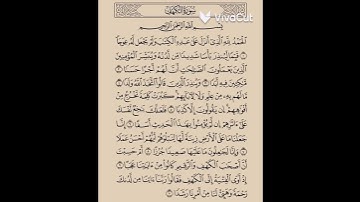 سُورَةُ الكَهْفِ
VivaCut
بِسْمِ ٱللَّهِ ٱلرَّحْمَٰنِ ٱلرَّحِيمِ
ٱلْحَمْدُ لِلَّهِ ٱلَّذِىٓ أَنزَلَ عَلَىٰ عَبْدِهِ ٱلْكِتَٰبَ وَلَمْ يَجْعَل لَّهُۥ عِوَجَا ۜ ١
قَيِّمًا لِّيُنذِرَ بَأْسًا شَدِيدًا مِّن لَّدُنْهُ وَيُبَشِّرَ ٱلْمُؤْمِنِينَ
ٱلَّذِينَ يَعْمَلُونَ ٱلصَّٰلِحَٰتِ أَنَّ لَهُمْ أَجْرًا حَسَنًا ٢
مَّٰكِثِينَ فِيهِ أَبَدًا ٣ وَيُنذِرَ ٱلَّذِينَ قَالُوا۟ ٱتَّخَذَ ٱللَّهُ وَلَدًا ٤
مَّا لَهُم بِهِۦ مِنْ عِلْمٍ وَلَا لِءَابَآئِهِمْ كَبُرَتْ كَلِمَةً تَخْرُجُ مِنْ
أَفْوَٰهِهِمْ إِن يَقُولُونَ إِلَّا كَذِبًا ٥ فَلَعَلَّكَ بَٰخِعٌ نَّفْسَكَ
عَلَىٰٓ ءَاثَٰرِهِمْ إِن لَّمْ يُؤْمِنُوا۟ بِهَٰذَا ٱلْحَدِيثِ أَسَفًا ٦ إِنَّا
جَعَلْنَا مَا عَلَى ٱلْأَرْضِ زِينَةً لَّهَا لِنَبْلُوَهُمْ أَيُّهُمْ أَحْسَنُ عَمَلًا ٧
وَإِنَّا لَجَٰعِلُونَ مَا عَلَيْهَا صَعِيدًا جُرُزًا ٨ أَمْ حَسِبْتَ
أَنَّ أَصْحَٰبَ ٱلْكَهْفِ وَٱلرَّقِيمِ كَانُوا۟ مِنْ ءَايَٰتِنَا عَجَبًا ٩
إِذْ أَوَى ٱلْفِتْيَةُ إِلَى ٱلْكَهْفِ فَقَالُوا۟ رَبَّنَآ ءَاتِنَا مِن لَّدُنكَ
رَحْمَةً وَهَيِّئْ لَنَا مِنْ أَمْرِنَا رَشَدًا ١٠